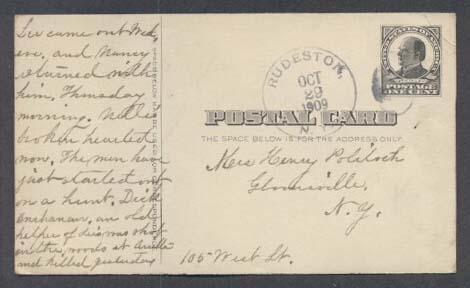 Lee came out Wed.
eve. and Nancy
returned with
him. Thursday
morning. Nell is
broken hearted
now. The men have
just started out
on a hunt. Dick
Buchanan, an old
helper of Lee's was shot
in the woods at Arietta
and killed yesterday
RUDESTON,
OCT
29
1909
N.Y.
POSTAGE
ONE CENT
POSTAL CARD
THE SPACE BELOW IS FOR THE ADDRESS ONLY.
Mrs Henry
Gloversville,
N. Y.
105 West St.